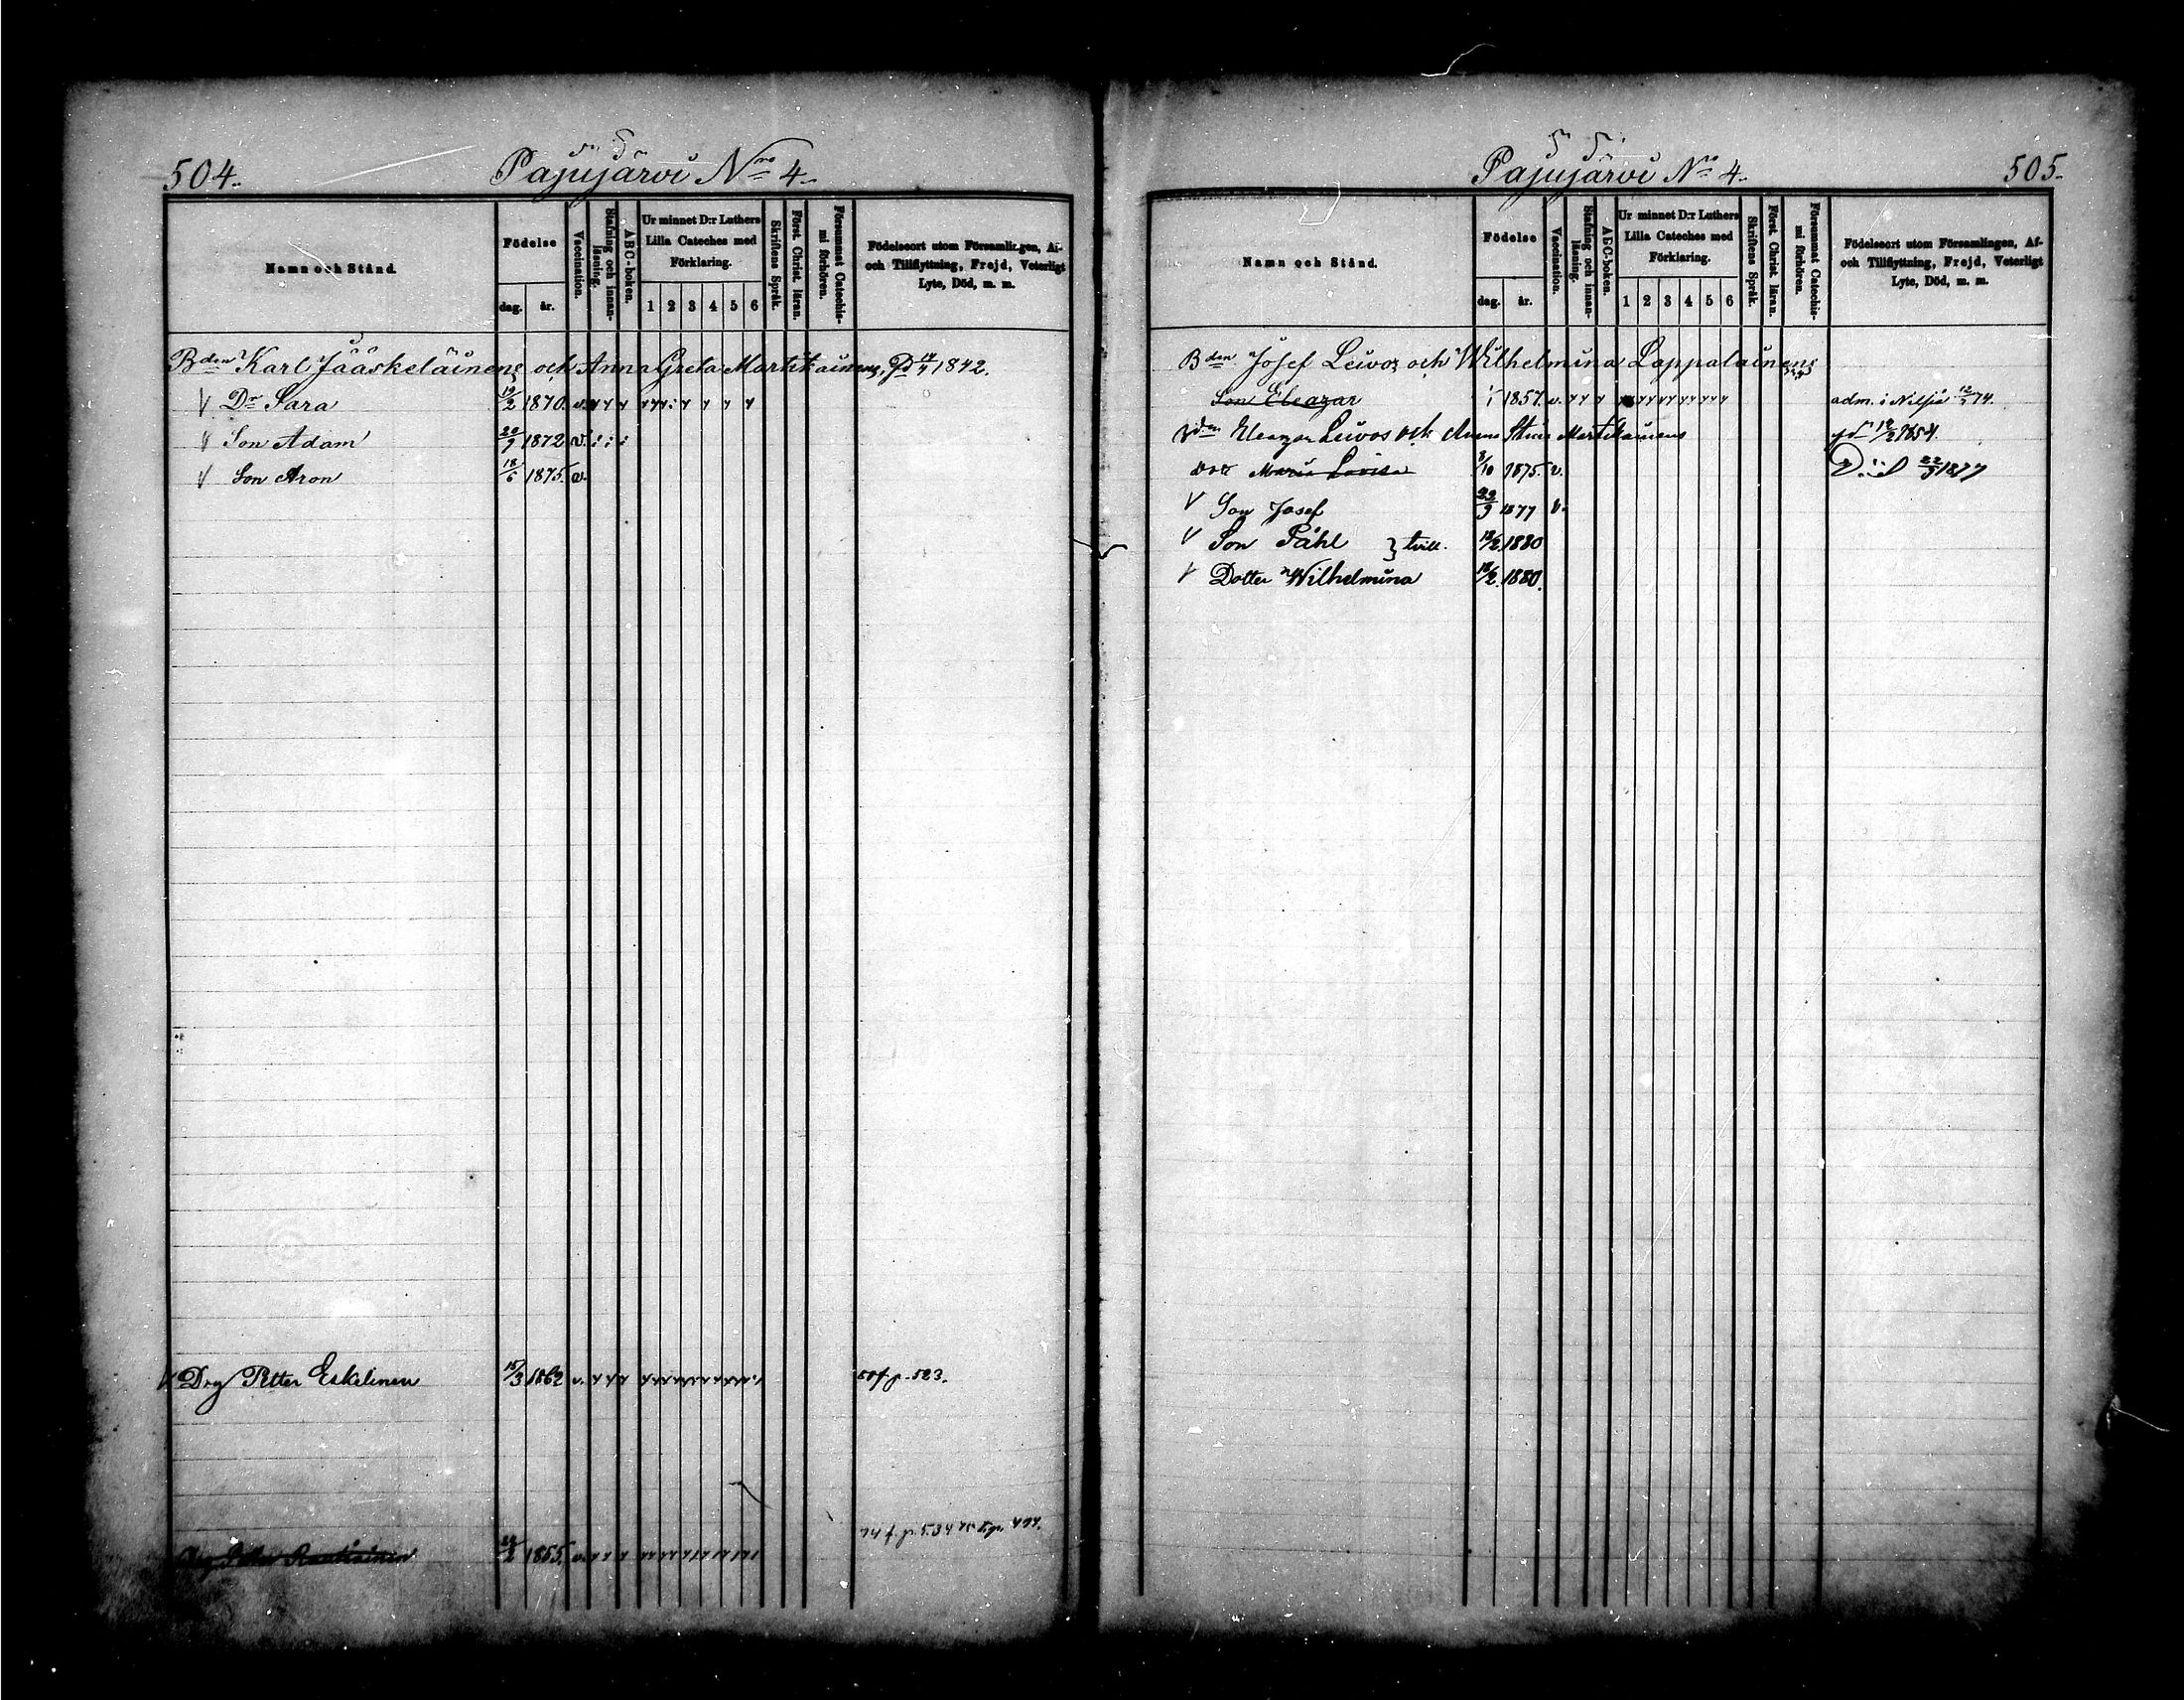 504.
Pajujärvi Nro 4.
Namn och Stånd.
Födelse
dag. år.
Vaccination.
Stafning och innanläsning.
ABC-boken.
Ur minnet D:r Luthers Lilla Cateches med Förklaring.
1 2 3 4 5 6
Skriftens Språk.
Först. Christ. läran.
Försummat Catechismi förhören.
Födelseort utom Församlingen, Af- och Tillflyttning, Frejd, Veterligt Lyte, Död, m. m.
Bden Karl Jääskeläinens och Anna Greta Martikainens, gd 14/4 1842.
V Dr Sara 19/2 1870. v.
V Son Adam 20/9 1872 v.
V Son Aron 18/6 1875. v.
V Drg Petter Eskelinen 15/3 1862 v. p. 523.
Drg Petter Rautiainen 1855. v.
505.
Pajujärvi No 4.
Namn och Stånd.
Födelse
dag. år.
Vaccination.
Stafning och innanläsning.
ABC-boken.
Ur minnet D:r Luthers Lilla Cateches med Förklaring.
1 2 3 4 5 6
Skriftens Språk.
Först. Christ. läran.
Försummat Catechismi förhören.
Födelseort utom Församlingen, Af- och Tillflyttning, Frejd, Veterligt Lyte, Död, m. m.
Bden Josef Leivos och Wilhelmina Lappalainens
Son Eleazar 1857. v. adm. i Nilsiä 74.
Bden Eleazar Leivos och Anna Stina Martikainens gd 12/2 1854.
Dotr Maria Lovisa 8/10 1875. v. Död 22/3 1877
V Son Josef 22/9 1877 v.
V Son Påhl } tvill. 18/2. 1880
V Dotter Wilhelmina 18/2. 1880.